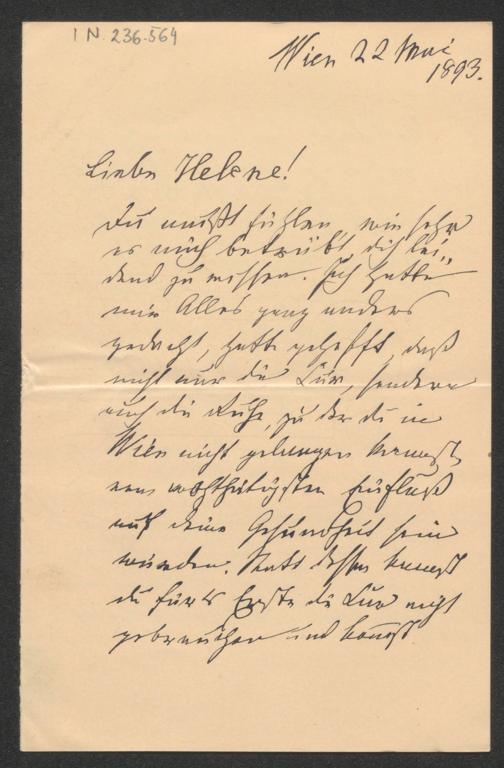 I N. 236.564
Wien 22 Mai
1893.
Liebe Helene!
Du mußt fühlen, wie sehr
es mich betrübt, dich lei„
dend zu wissen. Ich hatte
mir Alles ganz anders
gedacht, hatte gehofft, daß
nicht nur die Cur, sondern
auch die Ruhe, zu der du in
Wien nicht gelangen kannst,
vom wohlthätigsten Einfluß
auf deine Gesundheit sein
würden. Statt dessen kannst
du fürs Erste die Cur nicht
gebrauchen und kannst